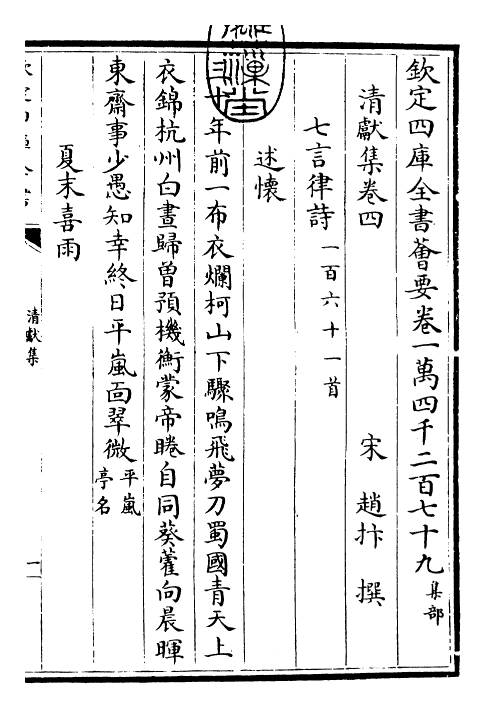 欽定四庫全書薈要卷一萬四千二百七十九 集部
清獻集卷四 宋 趙抃 撰
七言律詩 一百六十一首
述懷
三十年前一布衣爛柯山下驟鳴飛夢刀蜀國青天上
衣錦杭州白晝歸曽預機衡蒙帝睠自同葵藿向晨暉
東齋事少愚知幸終日平嵐面翠微 平嵐亭名
夏末喜雨
清獻集
一